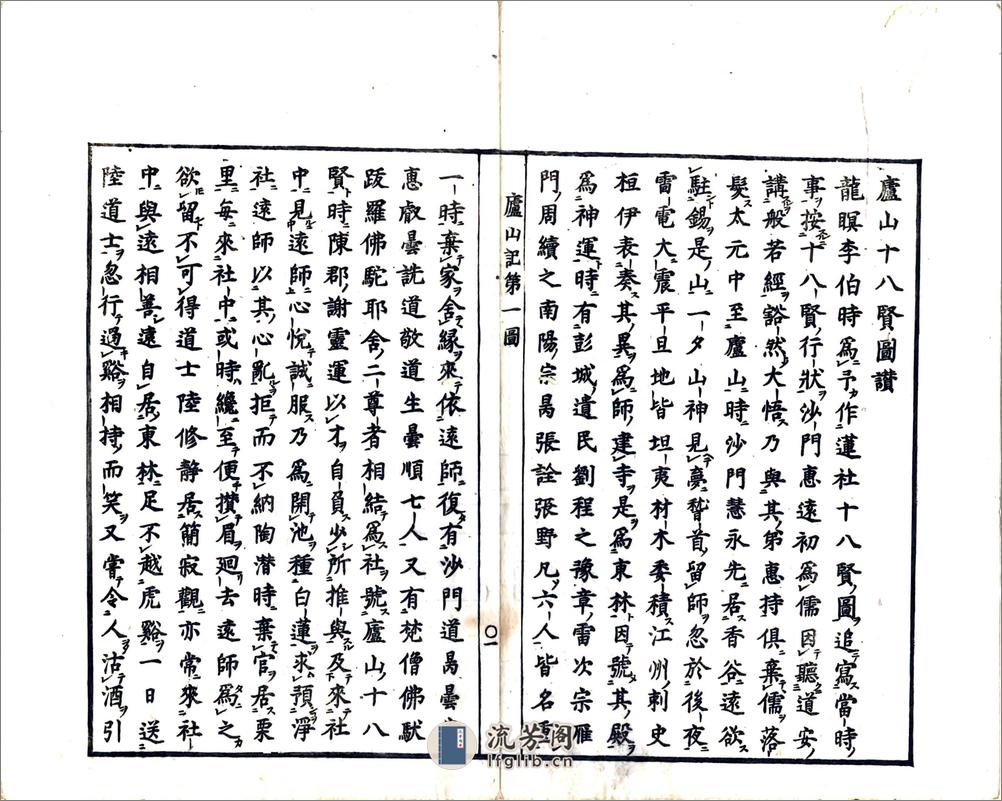 廬山十八賢圖讃
龍瞑李伯時爲予作蓮社十八賢圖追寫當時
事按十八賢行狀沙門惠遠初爲儒因聽道安
講般若經豁然大悟乃與其弟惠持俱棄儒落
髮太元中至廬山時沙門慧永先居香谷遠欲
駐錫是山一夕山神見夢稽首留師忽於後夜
雷電大震平旦地皆坦夷材木委積江州刺史
桓伊表奏其異爲師建寺是爲東林因號其殿
爲神運時有彭城遺民劉程之豫章雷次宗雁
門周續之南陽宗昺張詮張野凡六人皆名重
廬山記第一圖
〇一
一時棄家舍緣來依遠師復有沙門道昺曇
惠叡曇詵道敬道生曇順七人又有梵僧佛馱
跋羅佛駝耶舍二尊者相結爲社號廬山十八
賢時陳郡謝靈運以才自負少所推與及來社
中見遠師心悅誠服乃爲開池種白蓮求預淨
社遠師以其心亂拒而不納陶潛時棄官居栗
里每來社中或時纔至便攅眉廻去遠師爲之
欲留不可得道士陸修靜居簡寂觀亦常來社
中與遠相善遠自居東林足不越虎谿一日送
陸道士忽行過谿相持而笑又甞令人沽酒引
流芳阁
lfglib.cn